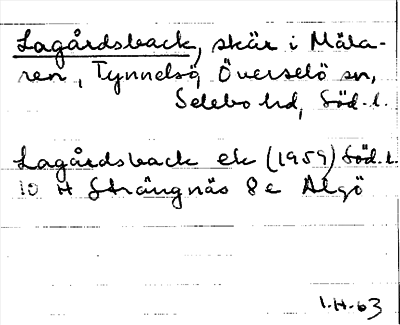 Lagårdsback, skär i Mäla-
ren, Tynnelsö, Överselö sn,
Selebo hd, Söd. l.
Lagårdsback ek (1959) Söd. l.
10 H Strängnäs 8 c Algö
I.H-63